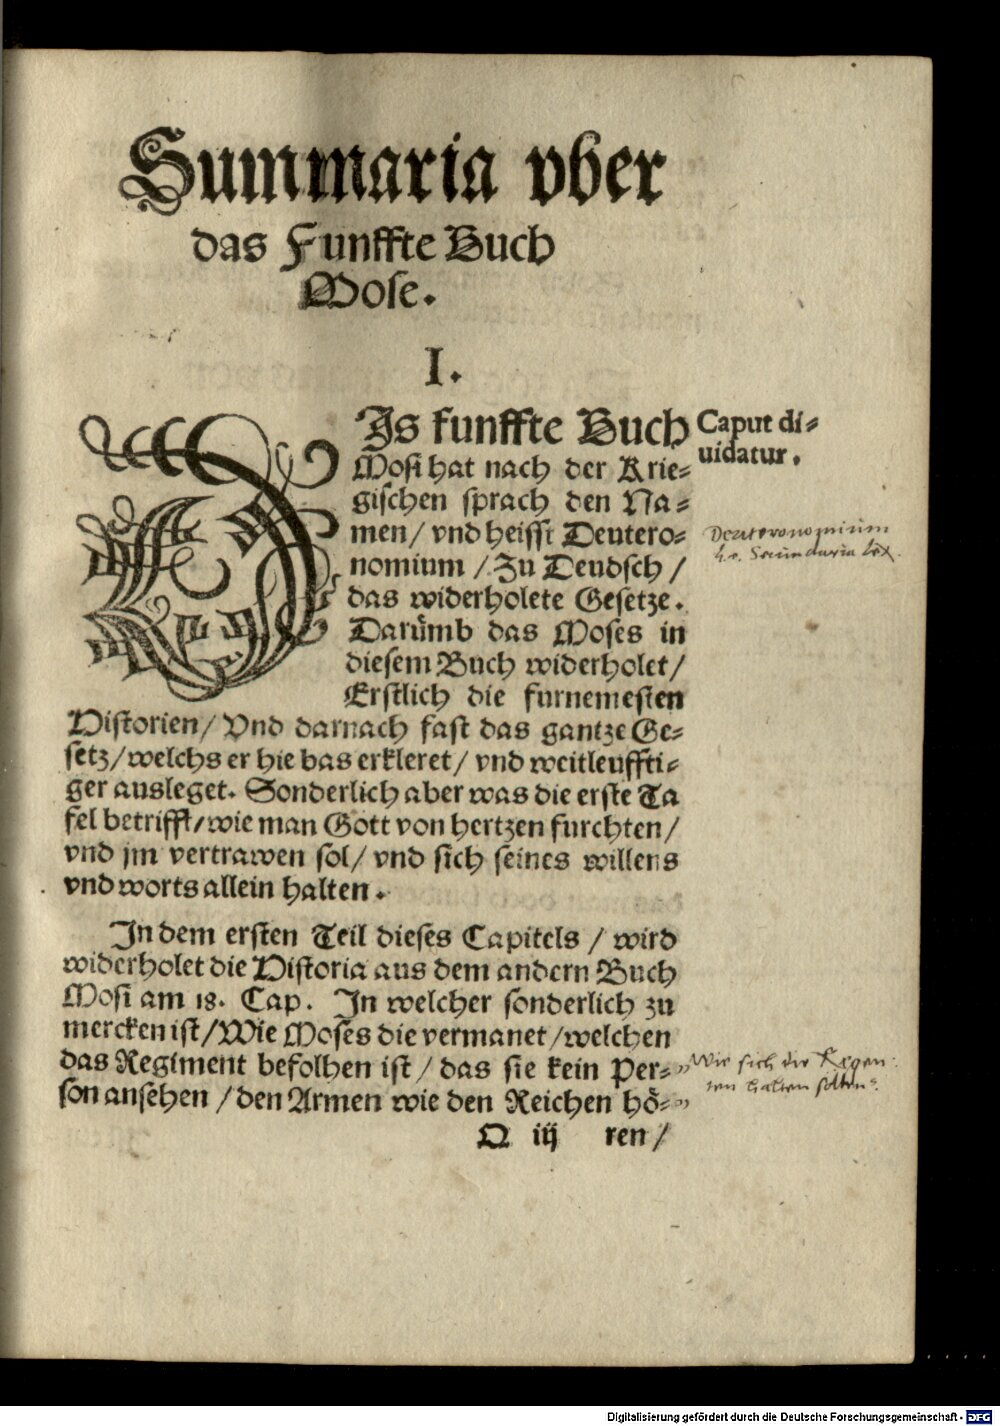 Summaria vber
das Funffte Buch
Mose.
I.
DIs funffte Buch
Mosi hat nach der Krie-
gischen sprach den Na-
men / vnd heisst Deutero-
nomium / Zu Deudsch /
das widerholete Gesetze.
Darümb das Moses in
diesem Buch widerholet /
Erstlich die furnemesten
Historien / Vnd darnach fast das gantze Ge-
setz / welchs er hie bas erkleret / vnd weitleuffti-
ger ausleget. Sonderlich aber was die erste Ta
fel betrifft / wie man Gott von hertzen furchten /
vnd jm vertrawen sol / vnd sich seines willens
vnd worts allein halten.
In dem ersten Teil dieses Capitels / wird
widerholet die Historia aus dem andern Buch
Mosi am 18. Cap. In welcher sonderlich zu
mercken ist / Wie Moses die vermanet / welchen
das Regiment befolhen ist / das sie kein Per-
son ansehen / den Armen wie den Reichen hö-
Q iij ren /
Caput di-
uidatur.
Deuteronomium
h.e. Secundaria lex.
Wie sich die Regen-
ten halten sollen.
Digitalisierung gefördert durch die Deutsche Forschungsgemeinschaft - DFG